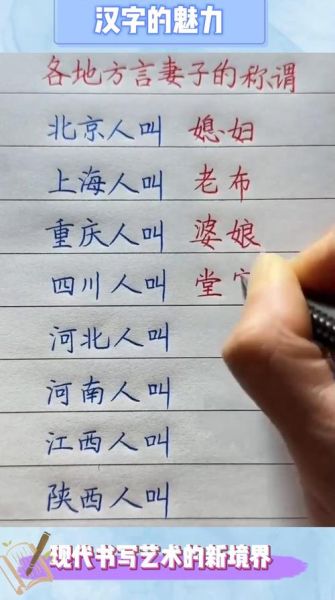 汉字的魅力
各地方言妻子的称谓
北京人叫 媳妇
上海人叫 老布
重庆人叫 婆娘
四川人叫 堂
河北人叫
河南人叫
江西人叫
陕西人叫
现代书写艺术的新境界